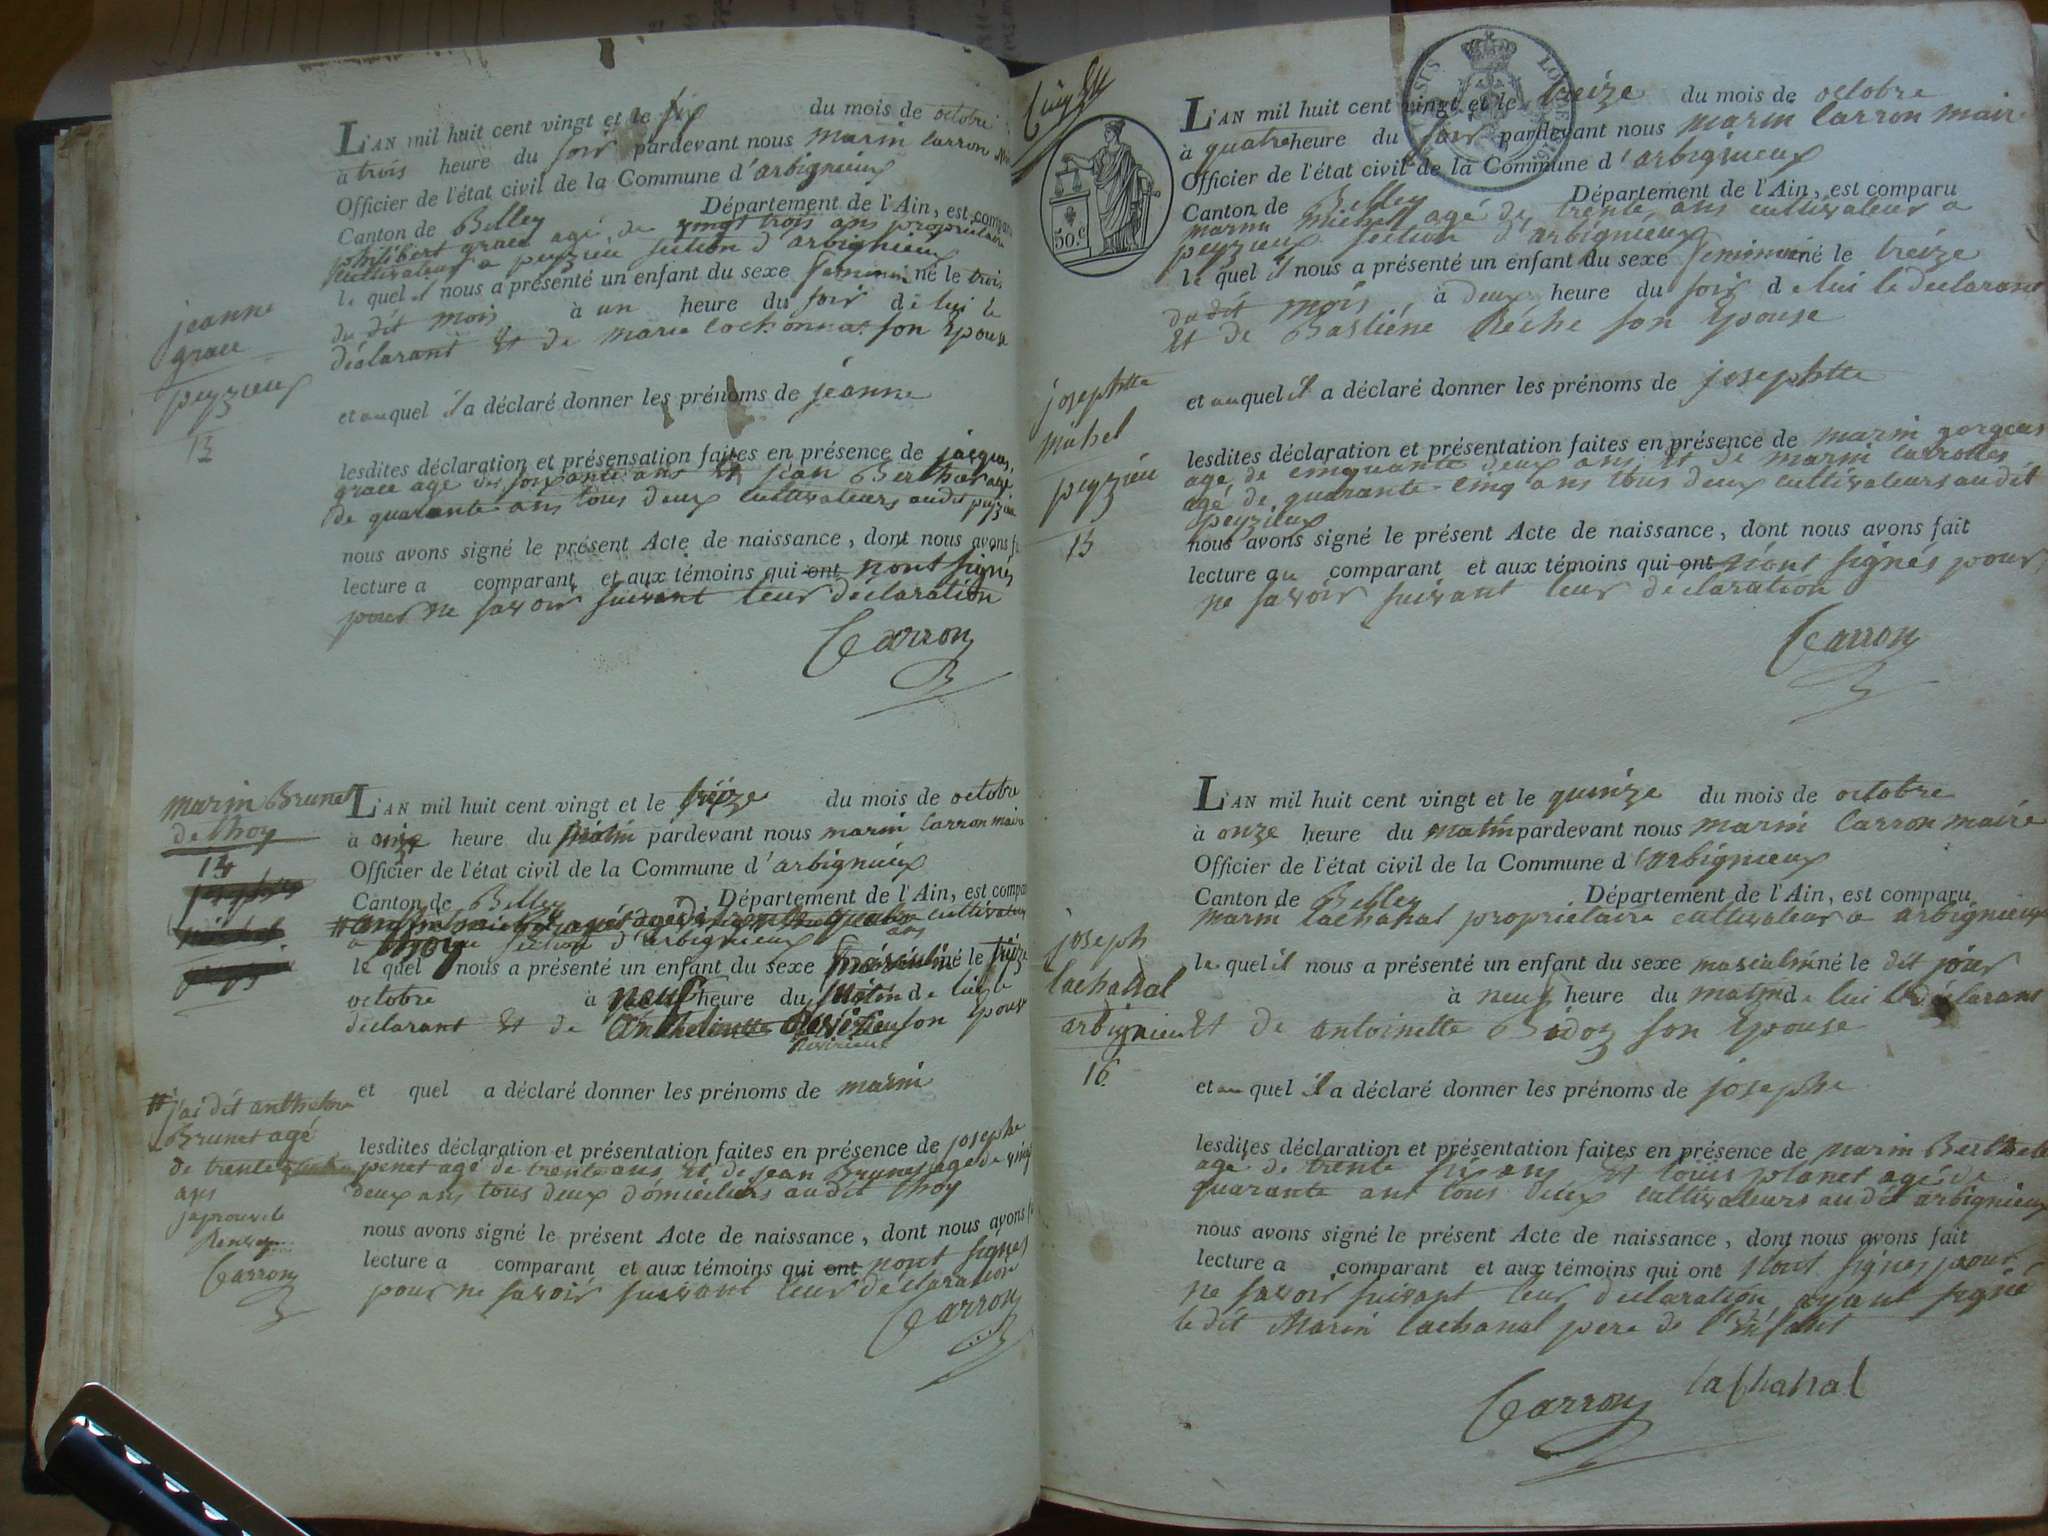 jeanne
grace
peyzieux
13
L'AN mil huit cent vingt et le six du mois de octobre
à trois heure du soir pardevant nous marin Carron
Officier de l'état civil de la Commune d'arbignieux
Canton de Belley Département de l'Ain, est comparu
philibert grace agé de vingt trois ans propriétaire
cultivateur a peyzieu section d'arbignieux
le quel il nous a présenté un enfant du sexe feminin né le trois
du dit mois à un heure du soir de lui le
déclarant Et de marie son Epouse
et au quel il a déclaré donner les prénoms de jéanne
lesdites déclaration et présensation faites en présence de jacques
grace agé de soixante ans Et jean Berthet agé
de quarante ans tous deux cultivateurs audit peyzieu
nous avons signé le présent Acte de naissance, dont nous avons
lecture a comparant et aux témoins qui ont n'ont signés
pour ne savoir suivant leur déclaration
Carron
marin Brunet
de thoy
14
L'AN mil huit cent vingt et le treize du mois de octobre
à onze heure du matin pardevant nous marin Carron maire
Officier de l'état civil de la Commune d'arbignieux
Canton de Belley Département de l'Ain, est comparu
cultivateur
a thoy section d'arbignieux
le quel nous a présenté un enfant du sexe masculin né le treize
octobre à neuf heure du matin de lui le
déclarant Et de Anthelmette son Epouse
et quel a déclaré donner les prénoms de marin
# j'ai dit anthelme
Brunet agé
de trente
ans
japrouve le
Renvoy
Carron
lesdites déclaration et présentation faites en présence de josephe
penet agé de trente ans Et de jean Brunet agé de vingt
deux ans tous deux domiciliers audit thoy
nous avons signé le présent Acte de naissance, dont nous avons
lecture a comparant et aux témoins qui ont nont signés
pour ne savoir suivant leur déclaration
Carron
50.c
josephtte
michel
peyzieu
15
L'AN mil huit cent vingt et le treize du mois de octobre
à quatre heure du soir pardevant nous marin Carron maire
Officier de l'état civil de la Commune d'arbignieux
Canton de Belley Département de l'Ain, est comparu
marin michel agé de trente ans cultivateur a
peyzieux section d'arbignieux
le quel il nous a présenté un enfant du sexe feminin né le treize
du dit mois, à deux heure du soir de lui le déclarant
Et de Bastiéne Réche son Epouse
et au quel il a déclaré donner les prénoms de josephtte
lesdites déclaration et présentation faites en présence de marin gorgeas
agé de cinquante deux ans Et de marin
agé de quarante-cinq ans tous deux cultivateurs audit
peyzieux
nous avons signé le présent Acte de naissance, dont nous avons fait
lecture au comparant et aux témoins qui ont n'ont signés pour
ne savoir suivant leur déclaration
Carron
joseph
lachanal
arbignieu
16
L'AN mil huit cent vingt et le quinze du mois de octobre
à onze heure du matin pardevant nous marin Carron maire
Officier de l'état civil de la Commune d'arbignieux
Canton de Belley Département de l'Ain, est comparu
marin lachanal propriétaire cultivateur a arbignieux
le quel il nous a présenté un enfant du sexe masculin né le dit jour
à neuf heure du matin de lui le déclarant
Et de antoinette Bidoz son Epouse
et au quel il a déclaré donner les prénoms de josephe
lesdites déclaration et présentation faites en présence de marin Berthelet
agé de trente six ans Et louis planet agé de
quarante ans tous deux cultivateurs audit arbignieux
nous avons signé le présent Acte de naissance, dont nous avons fait
lecture a comparant et aux témoins qui ont n'ont signés pour
ne savoir suivant leur déclaration ayant signé
le dit Marin lachanal pere de l'enfant
Carron lachanal